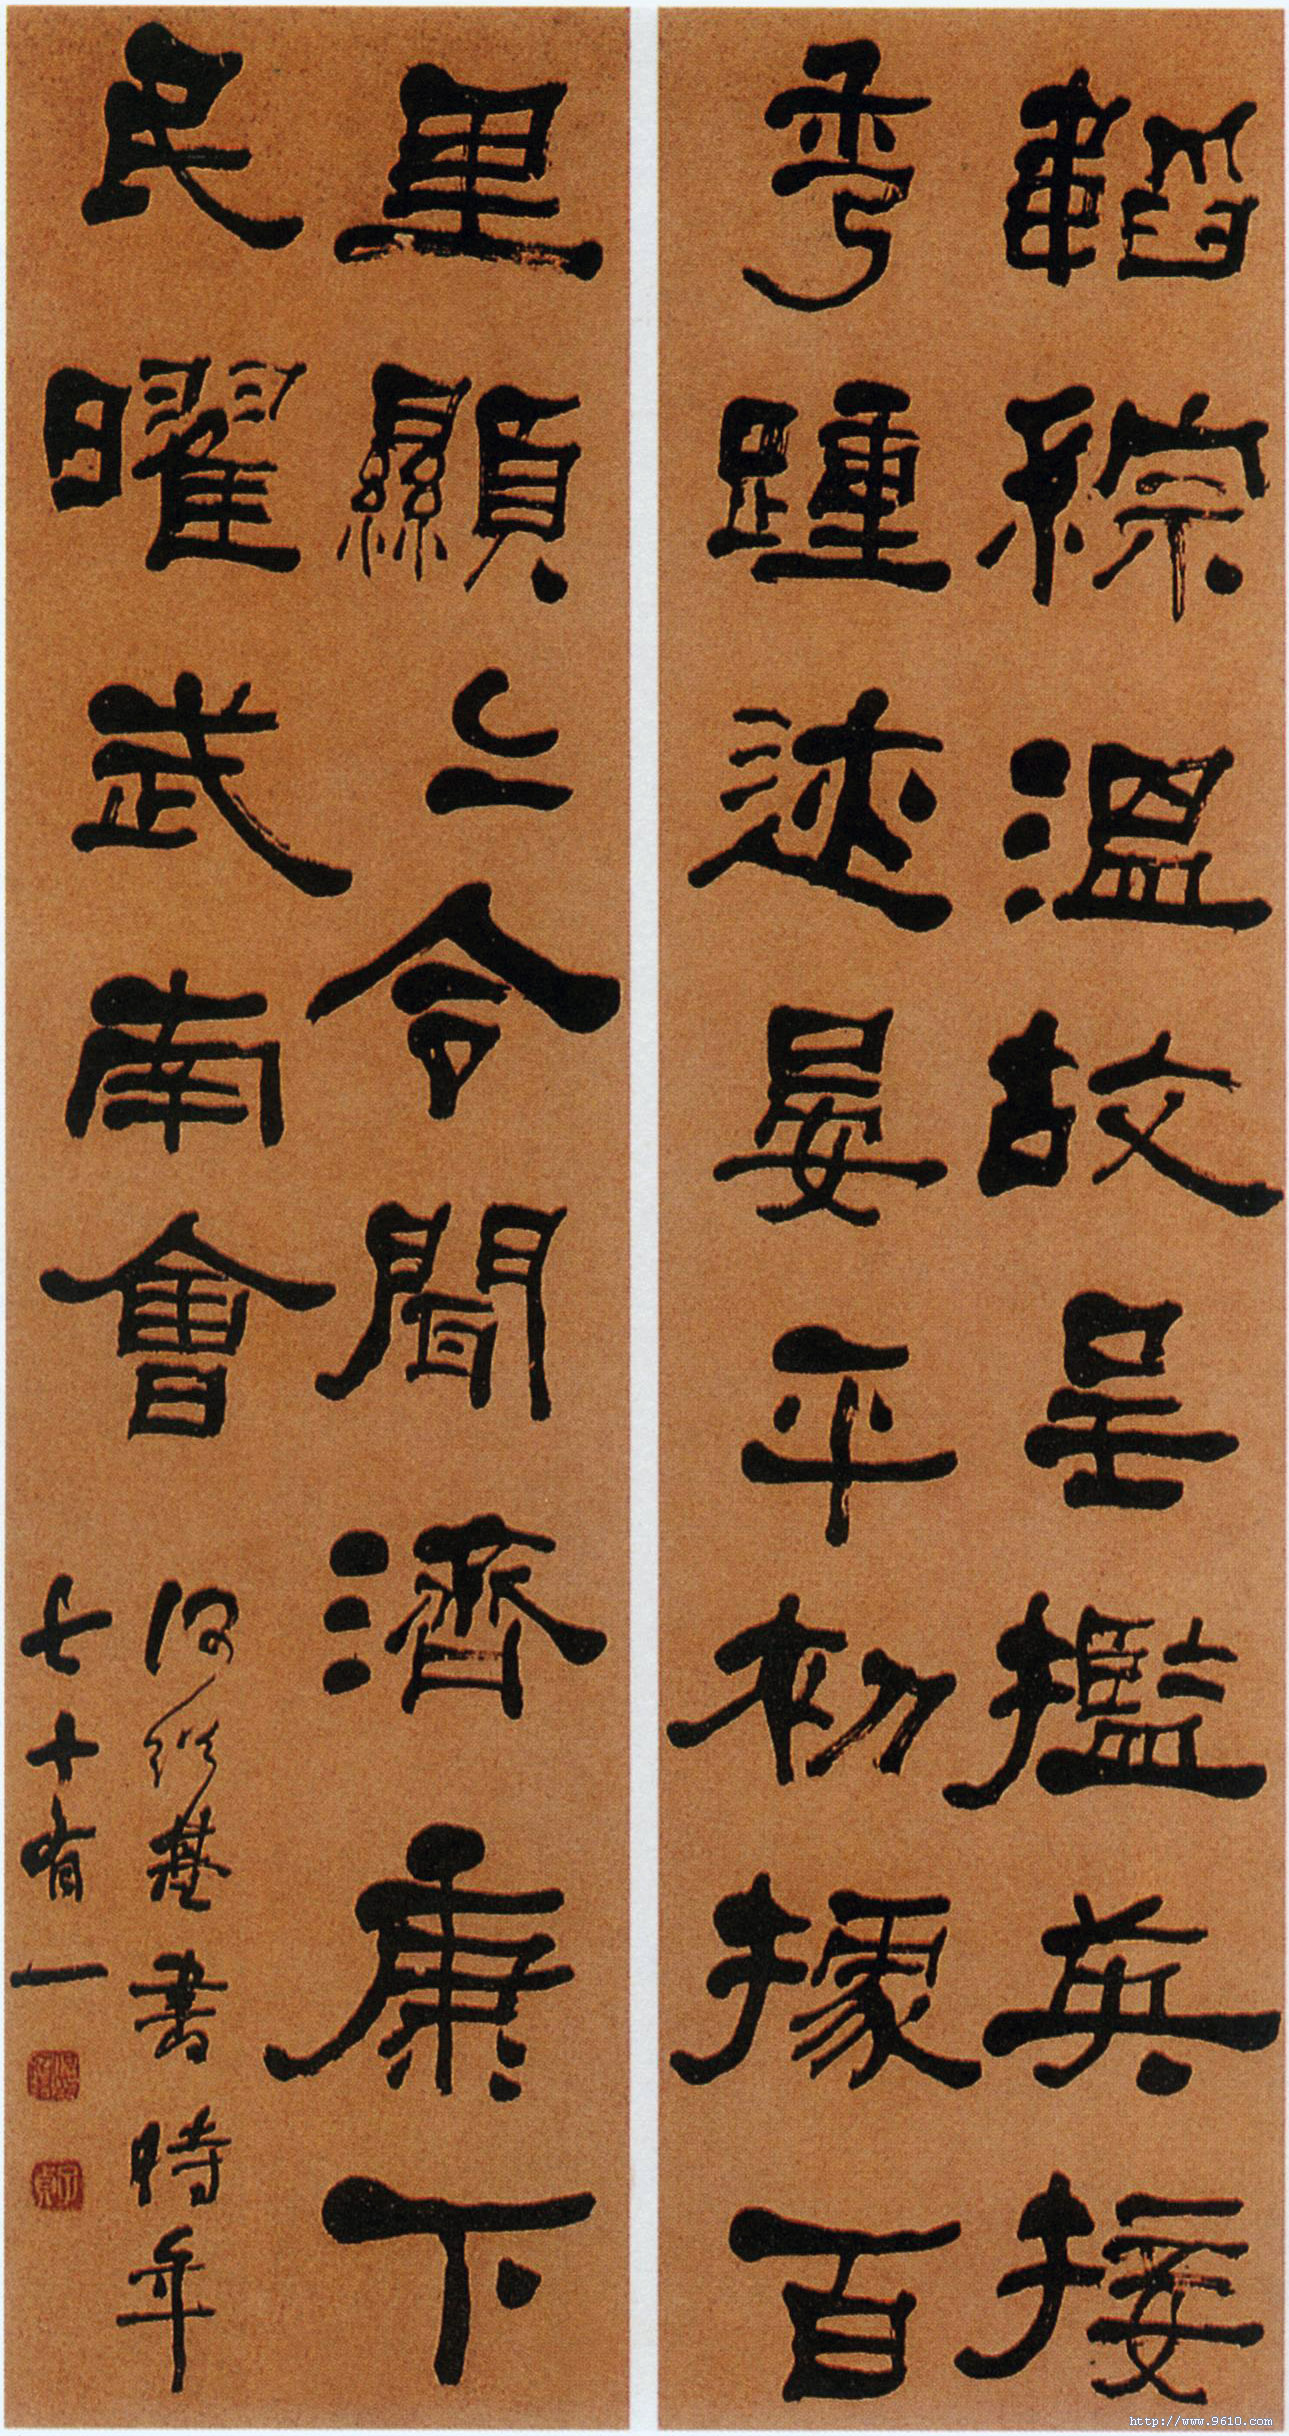 韜綜溫故呈㩜英接
秀踵迹晏平初據百
里顯二令聞濟康下
民曜武南會
何紹基書時年
七十有一
http://www.9610.com/